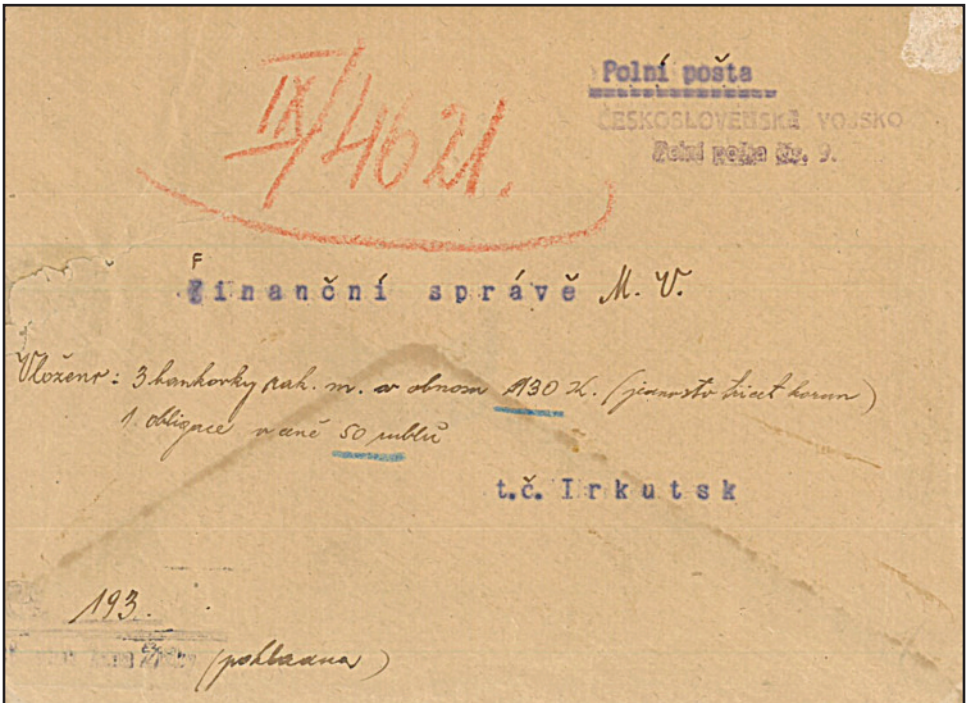 IX/4621.
Polní pošta
ČESKOSLOVENSKÉ VOJSKO
Polní pošta čís. 9.
F
Finanční správě M. V.
Vloženo: 3 bankovky rak. m. v obnosu 130 K. (jednosto třicet korun)
1 obligace v ceně 50 rublů
t.č. Irkutsk
193.
(pokladna)